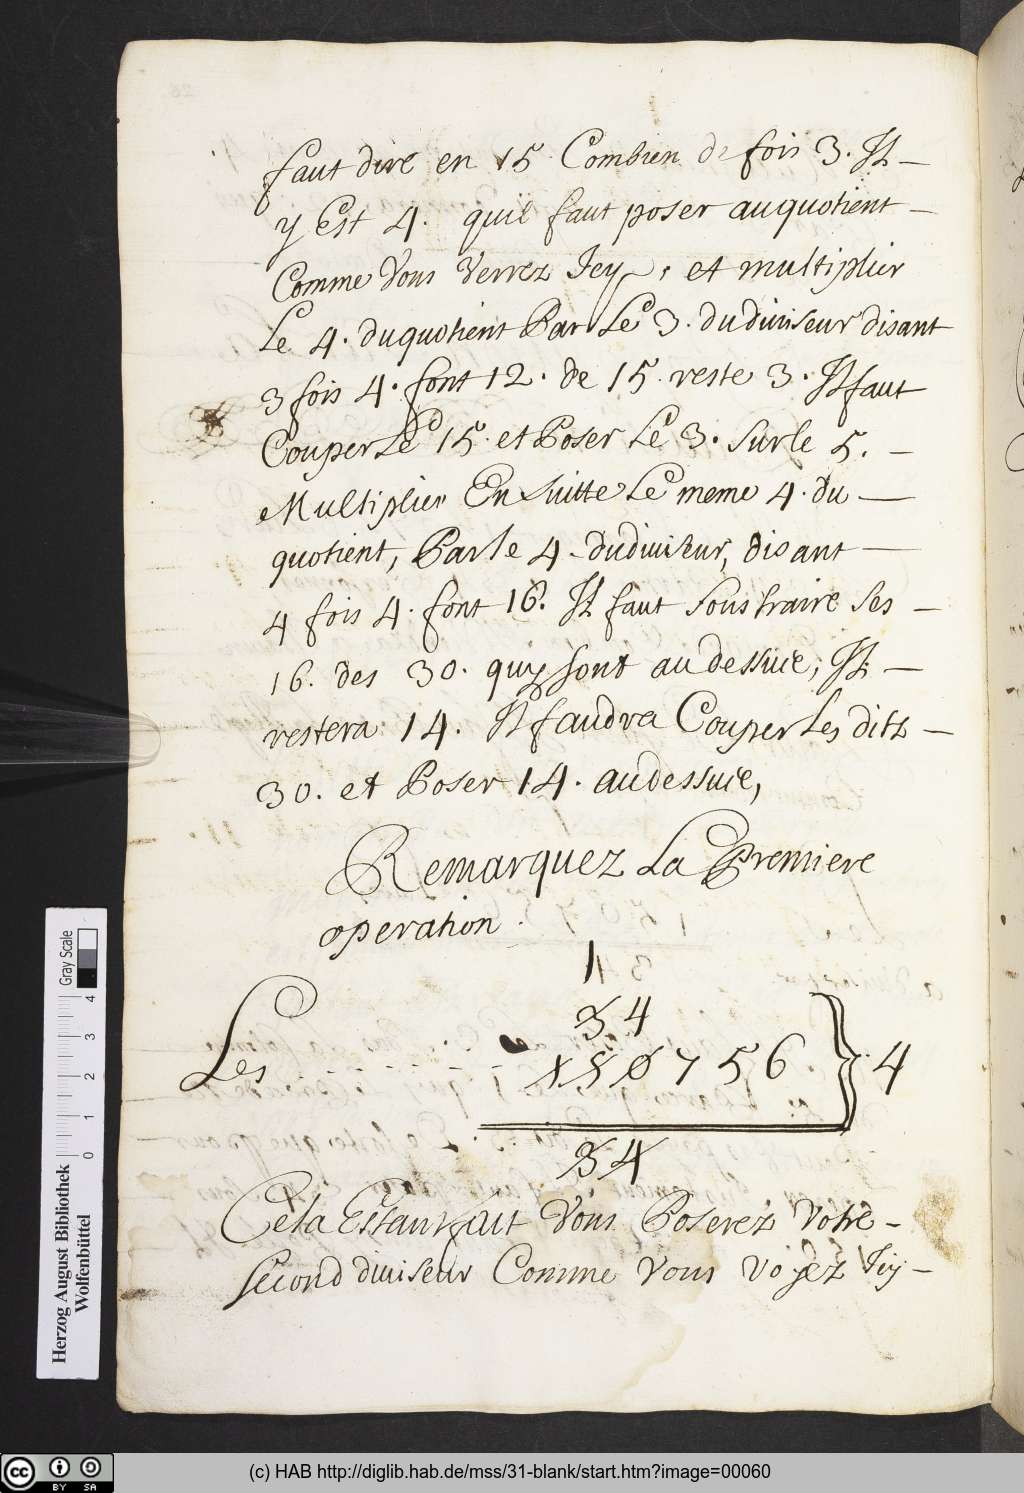 faut dire en 15 Combien de fois 3. Il
y Est 4. quil faut poser au quotient
Comme Vous Verrez Icy, et multiplier
Le 4. du quotient Par Le 3. du diviseur disant
3 fois 4. font 12. de 15 reste 3. Il faut
Couper Le 15. et Poser Le 3. sur le 5.
Multiplier En suitte Le meme 4. du
quotient, Par le 4 du diviseur, disant
4 fois 4. font 16. Il faut soustraire ses
16. des 30. quy sont au dessuie, Il
restera 14. Il faudra Couper Les dits
30. et Poser 14. au dessuie,
Remarquez La Premiere
operation.
1
3 4
Les 150756 } 4
34
Cela Estant fait Vous Poserez Votre
second diviseur Comme Vous voyez Icy
Gray Scale
0 1 2 3 4
Herzog August Bibliothek
Wolfenbüttel
cc BY SA
(c) HAB http://diglib.hab.de/mss/31-blank/start.htm?image=00060